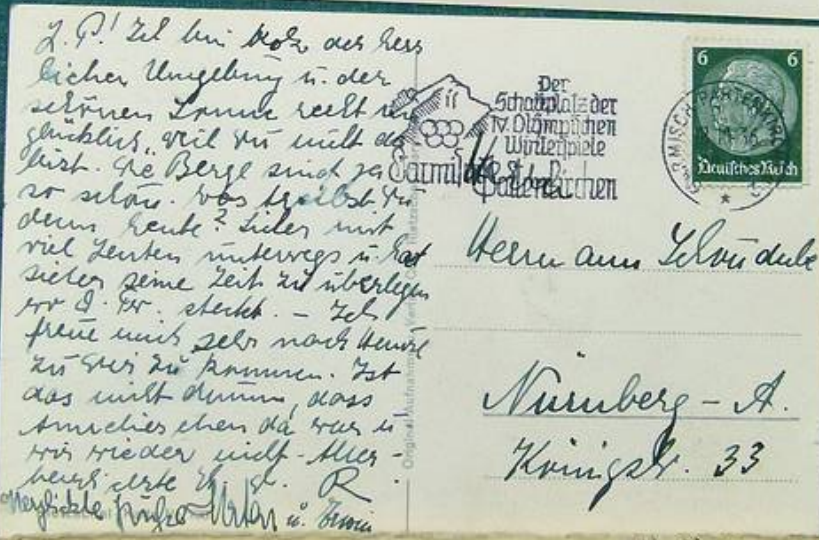 L. P.! Ich bin trotz der herr
lichen Umgebung u. der
schönen Sonne recht un
glücklich, weil Du nicht da
bist. Die Berge sind ja
so schön. Was treibst Du
denn heute? Sicher mit
viel Leuten unterwegs u. hat
sicher keine Zeit zu überlegen
wo d. Fr. steckt. – Ich
freue mich sehr nach Hause
zu Dir zu kommen. Ist
das nicht dumm, dass
Annelies eben da war u
wir wieder nicht. Aller-
herzlichste R.
Herzlichste Grüße u. Erwin
Der
Schauplatz der
IV. Olympischen
Winterspiele
Garmisch
Partenkirchen
GARMISCH-PARTENKIRCHEN
6 6
Deutsches Reich
Herrn
Nürnberg – A.
Königstr. 33
Original-Aufnahme